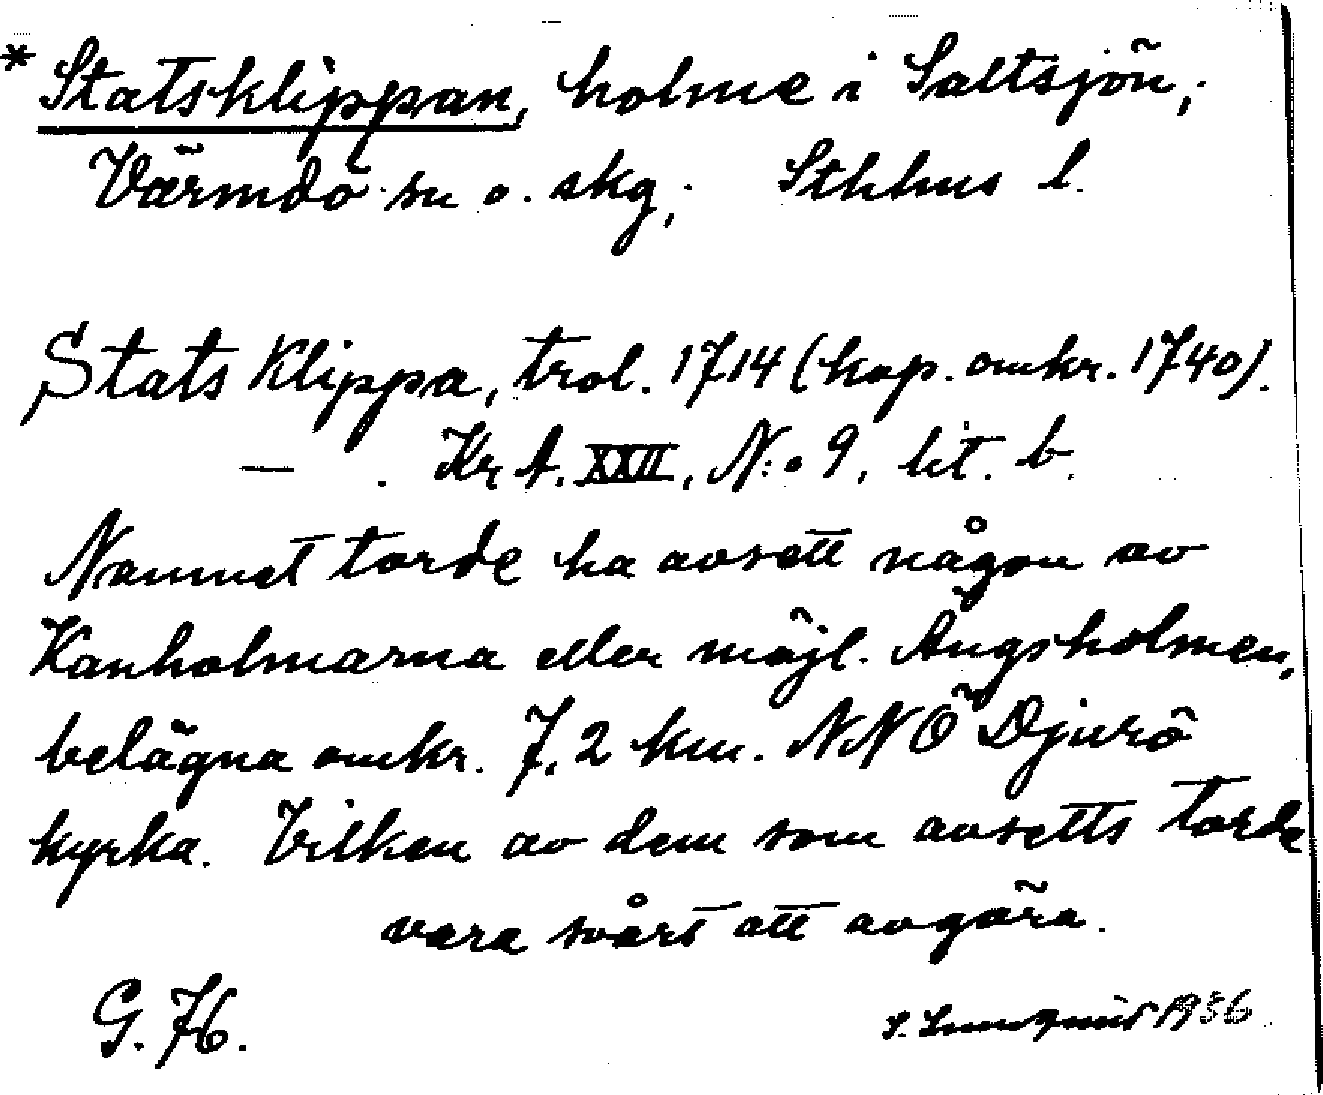 * Statsklippan, holme i Saltsjön,
Värmdö sn o. skg, Sthlms l.
Stats Klippa, trol. 1714 (kop. omkr. 1740).
— . Kr A. XXII, N:o 9, lit. b.
Namnet torde ha avsett någon av
Kanholmarna eller möjl. Ängsholmen,
belägna omkr. 7,2 km. NNÖ Djurö
kyrka. Vilken av dem som avsetts torde
vara svårt att avgöra.
G. 76. 1936